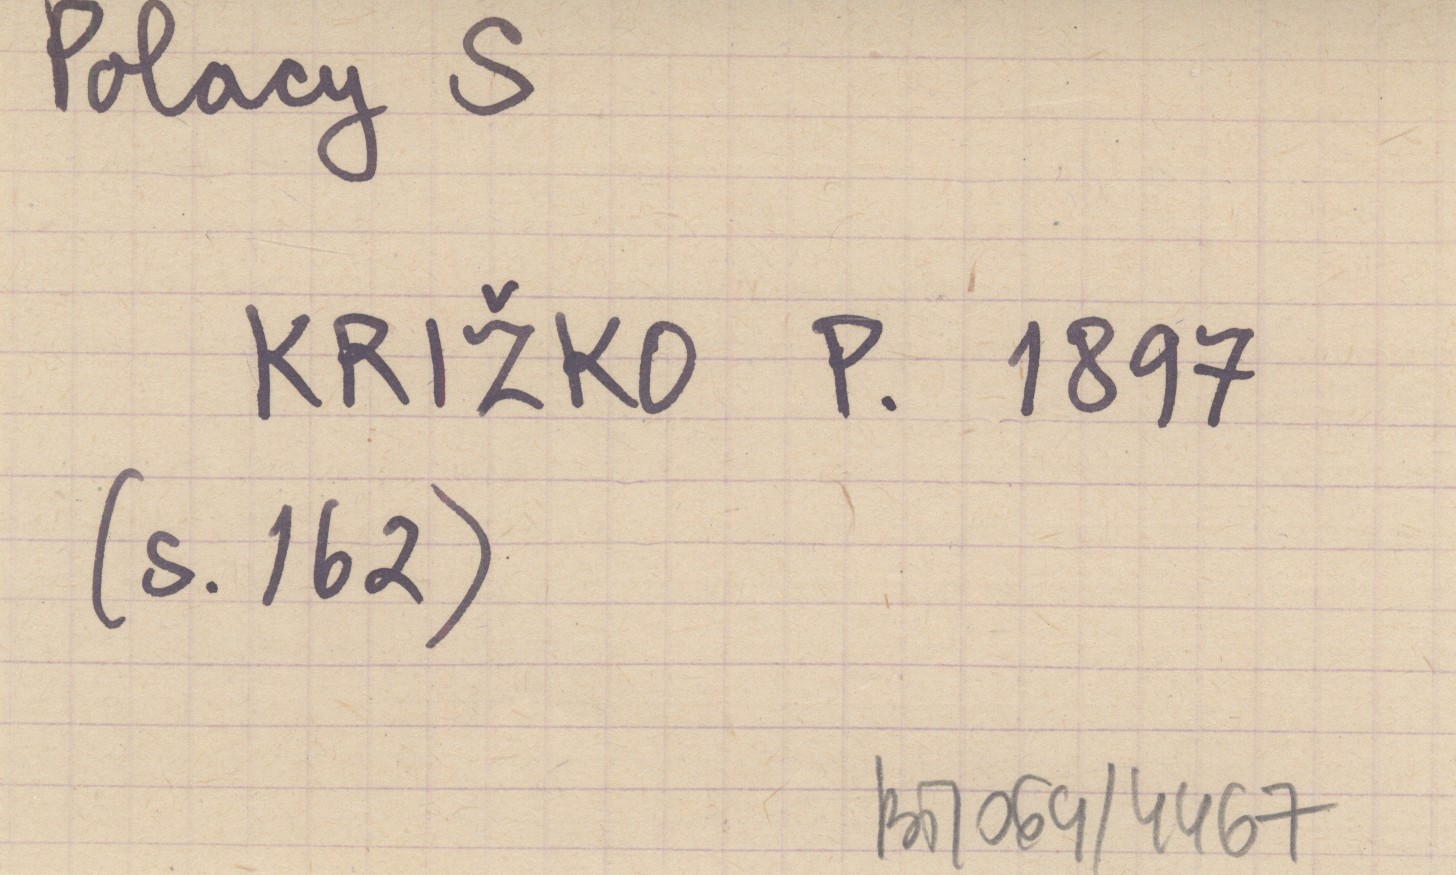 Polacy S
KRIŽKO P. 1897
(s. 162)
064/4467